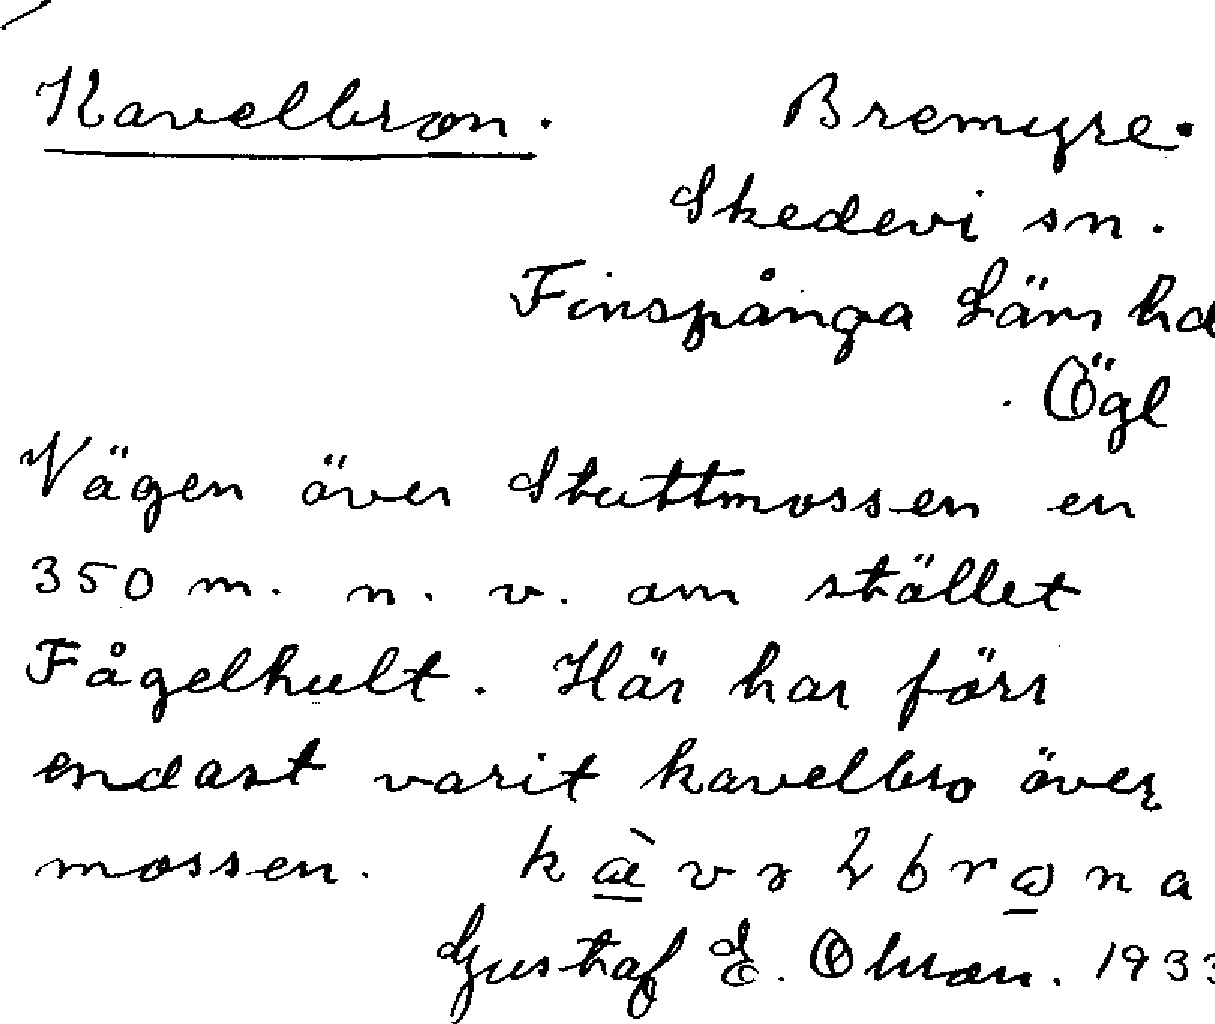 Kavelbron. Bremyre.
Skedevi sn.
Finspånga Läns hd
Ögl
Vägen över Stuttmossen en
350 m. n. v. om stället
Fågelhult. Här har förr
endast varit kavelbro över
mossen.
Gustaf E. Olsson. 1933